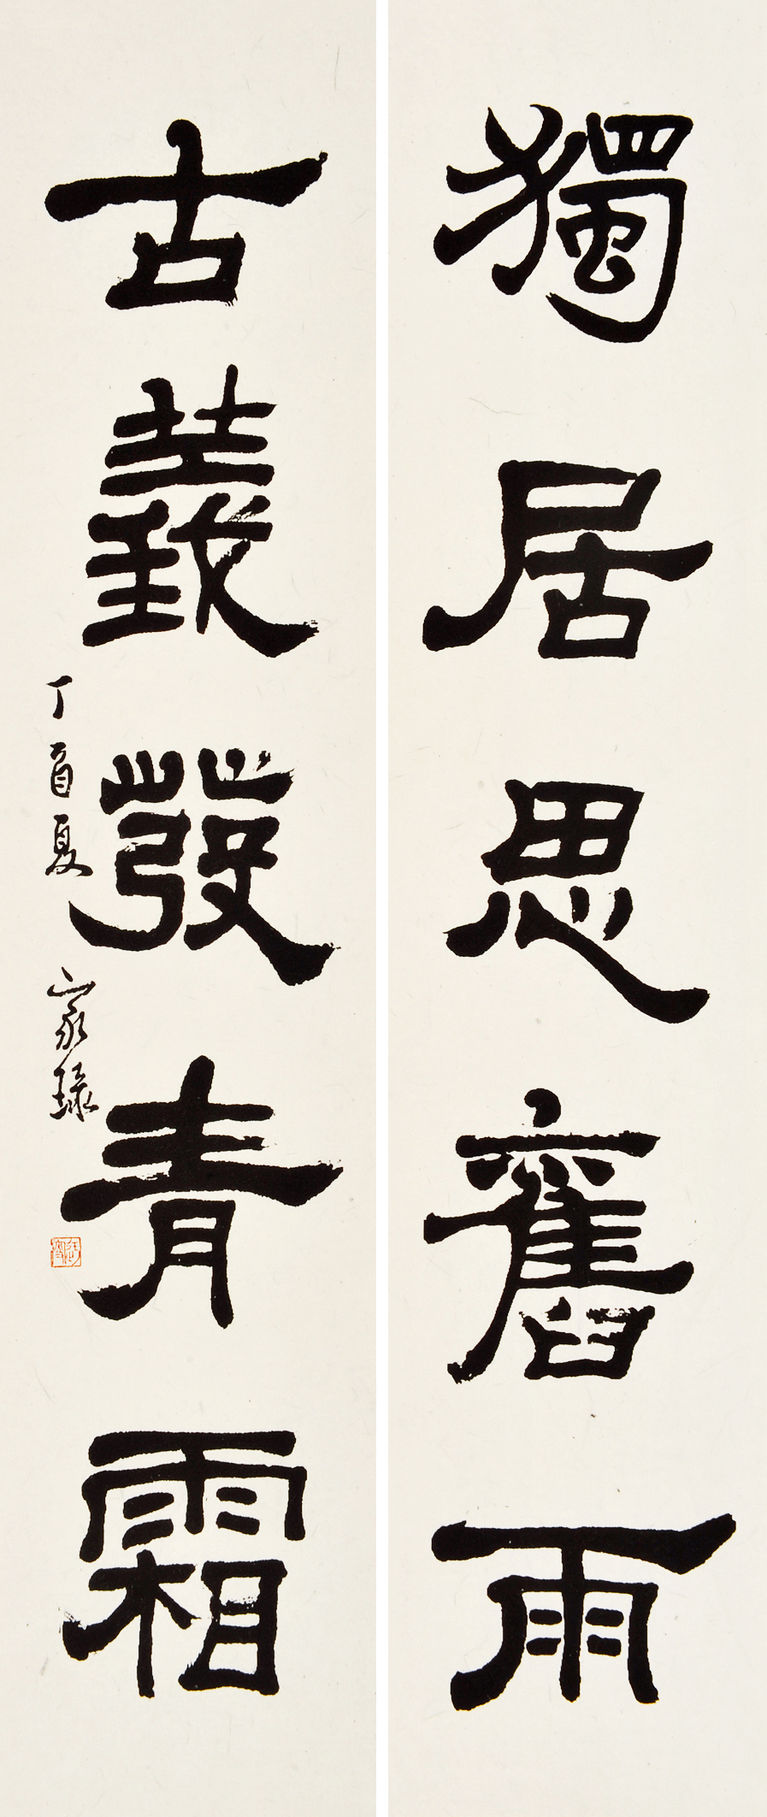 獨居思舊雨
古義發青霜
丁酉夏 家琭